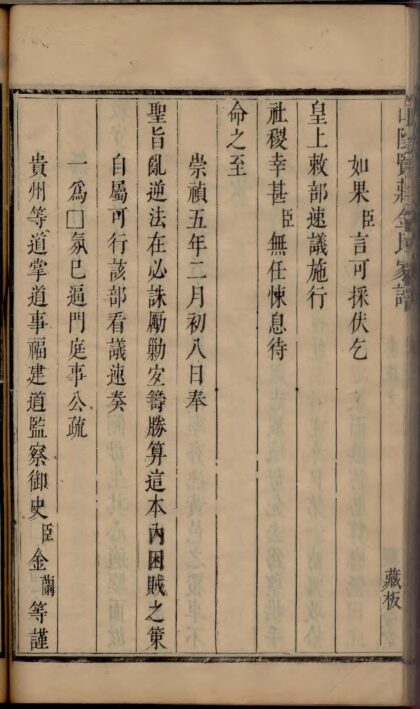 山陰賢莊金氏家譜
藏板
如果臣言可採伏乞
皇上敕部速議施行
社稷幸甚臣無任悚息待
命之至
崇禎五年二月初八日奉
聖旨亂逆法在必誅勵勦安籌勝算這本內困賊之策
自屬可行該部看議速奏
一爲□氛已逼門庭事公疏
貴州等道掌道事福建道監察御史臣金蘭等謹